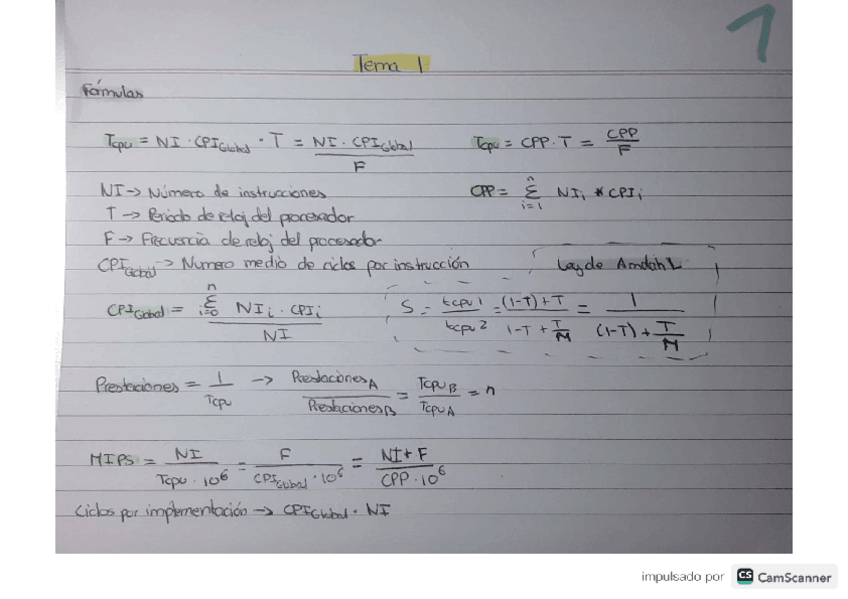 1
Tema 1
Fórmulas
Tcpu = NI · CPIGlobal · T = NI · CPIGlobal / F
Tcpu = CPP · T = CPP / F
NI -> Número de instrucciones
CPP = Σ i=1 n NIi * CPIi
T -> Periodo de reloj del procesador
F -> Frecuencia de reloj del procesador
CPIGlobal -> Numero medio de ciclos por instrucción
Ley de Amdahl
CPIGlobal = Σ i=0 n NIi · CPIi / NI
S = tcpu1 / tcpu2 = (1-T)+T / 1-T + T/M = 1 / (1-T) + T/M
Prestaciones = 1 / Tcpu -> PrestacionesA / PrestacionesB = TcpuB / TcpuA = n
MIPS = NI / Tcpu · 10^6 = F / CPIGlobal · 10^6 = NI * F / CPP · 10^6
Ciclos por implementación -> CPIGlobal · NI
impulsado por CS CamScanner